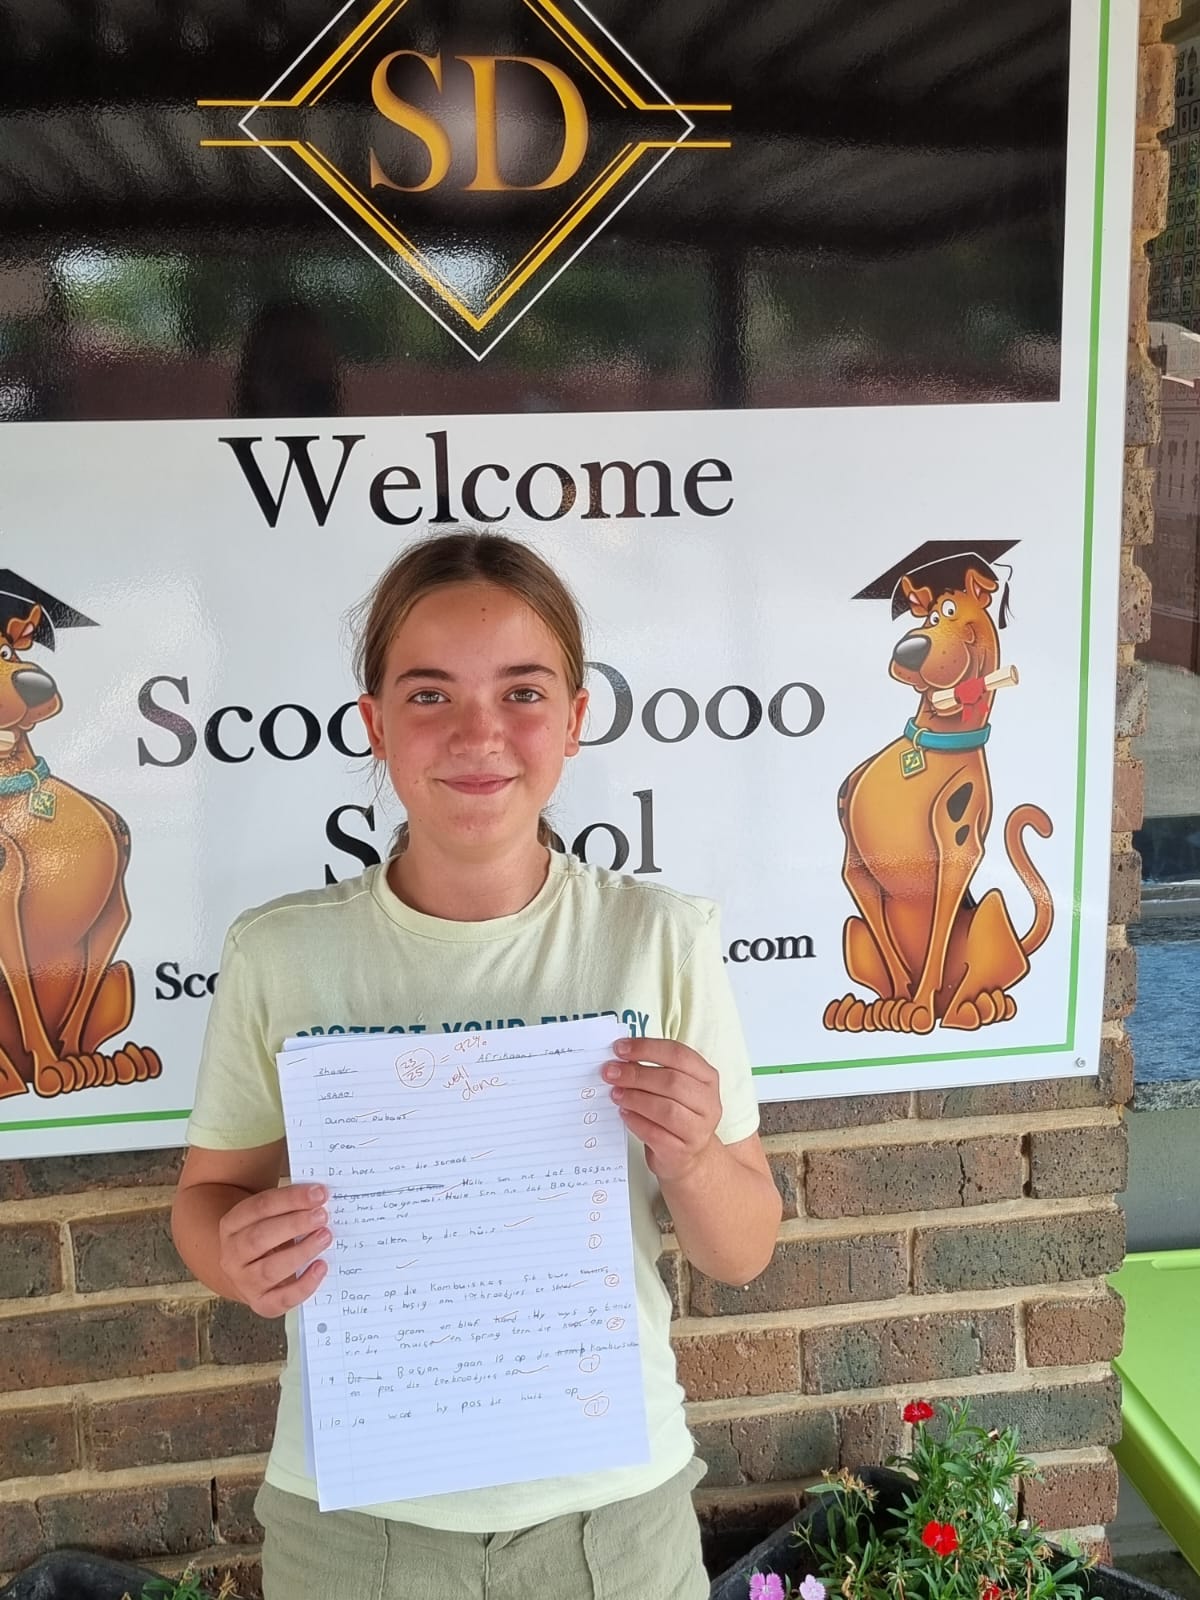 SD
Welcome
Scoo Dooo
S ool
Sco .com
PROTECT YOUR ENERGY
23/25 = 92%
Afrikaans
well
done
1.1 Dubois
②
1.2 groen
①
1.3 Die hoek van die straat
①
Hulle sien nie dat Basjan in
die huis Hulle sien nie dat Basjan nie
uit kamm nie
②
Hy is alleen by die huis
①
hoor
①
1.7 Daar op die Kombuiskas sit twee
Hulle is besig om toebroodjies te
②
1.8 Basjan grom en blaf Hy wys sy tande
vir die muise en spring teen die op
③
1.9 Basjan gaan lê op die kombuis
en pas die toebroodjies op
①
1.10 Ja want hy pas die huis op
①